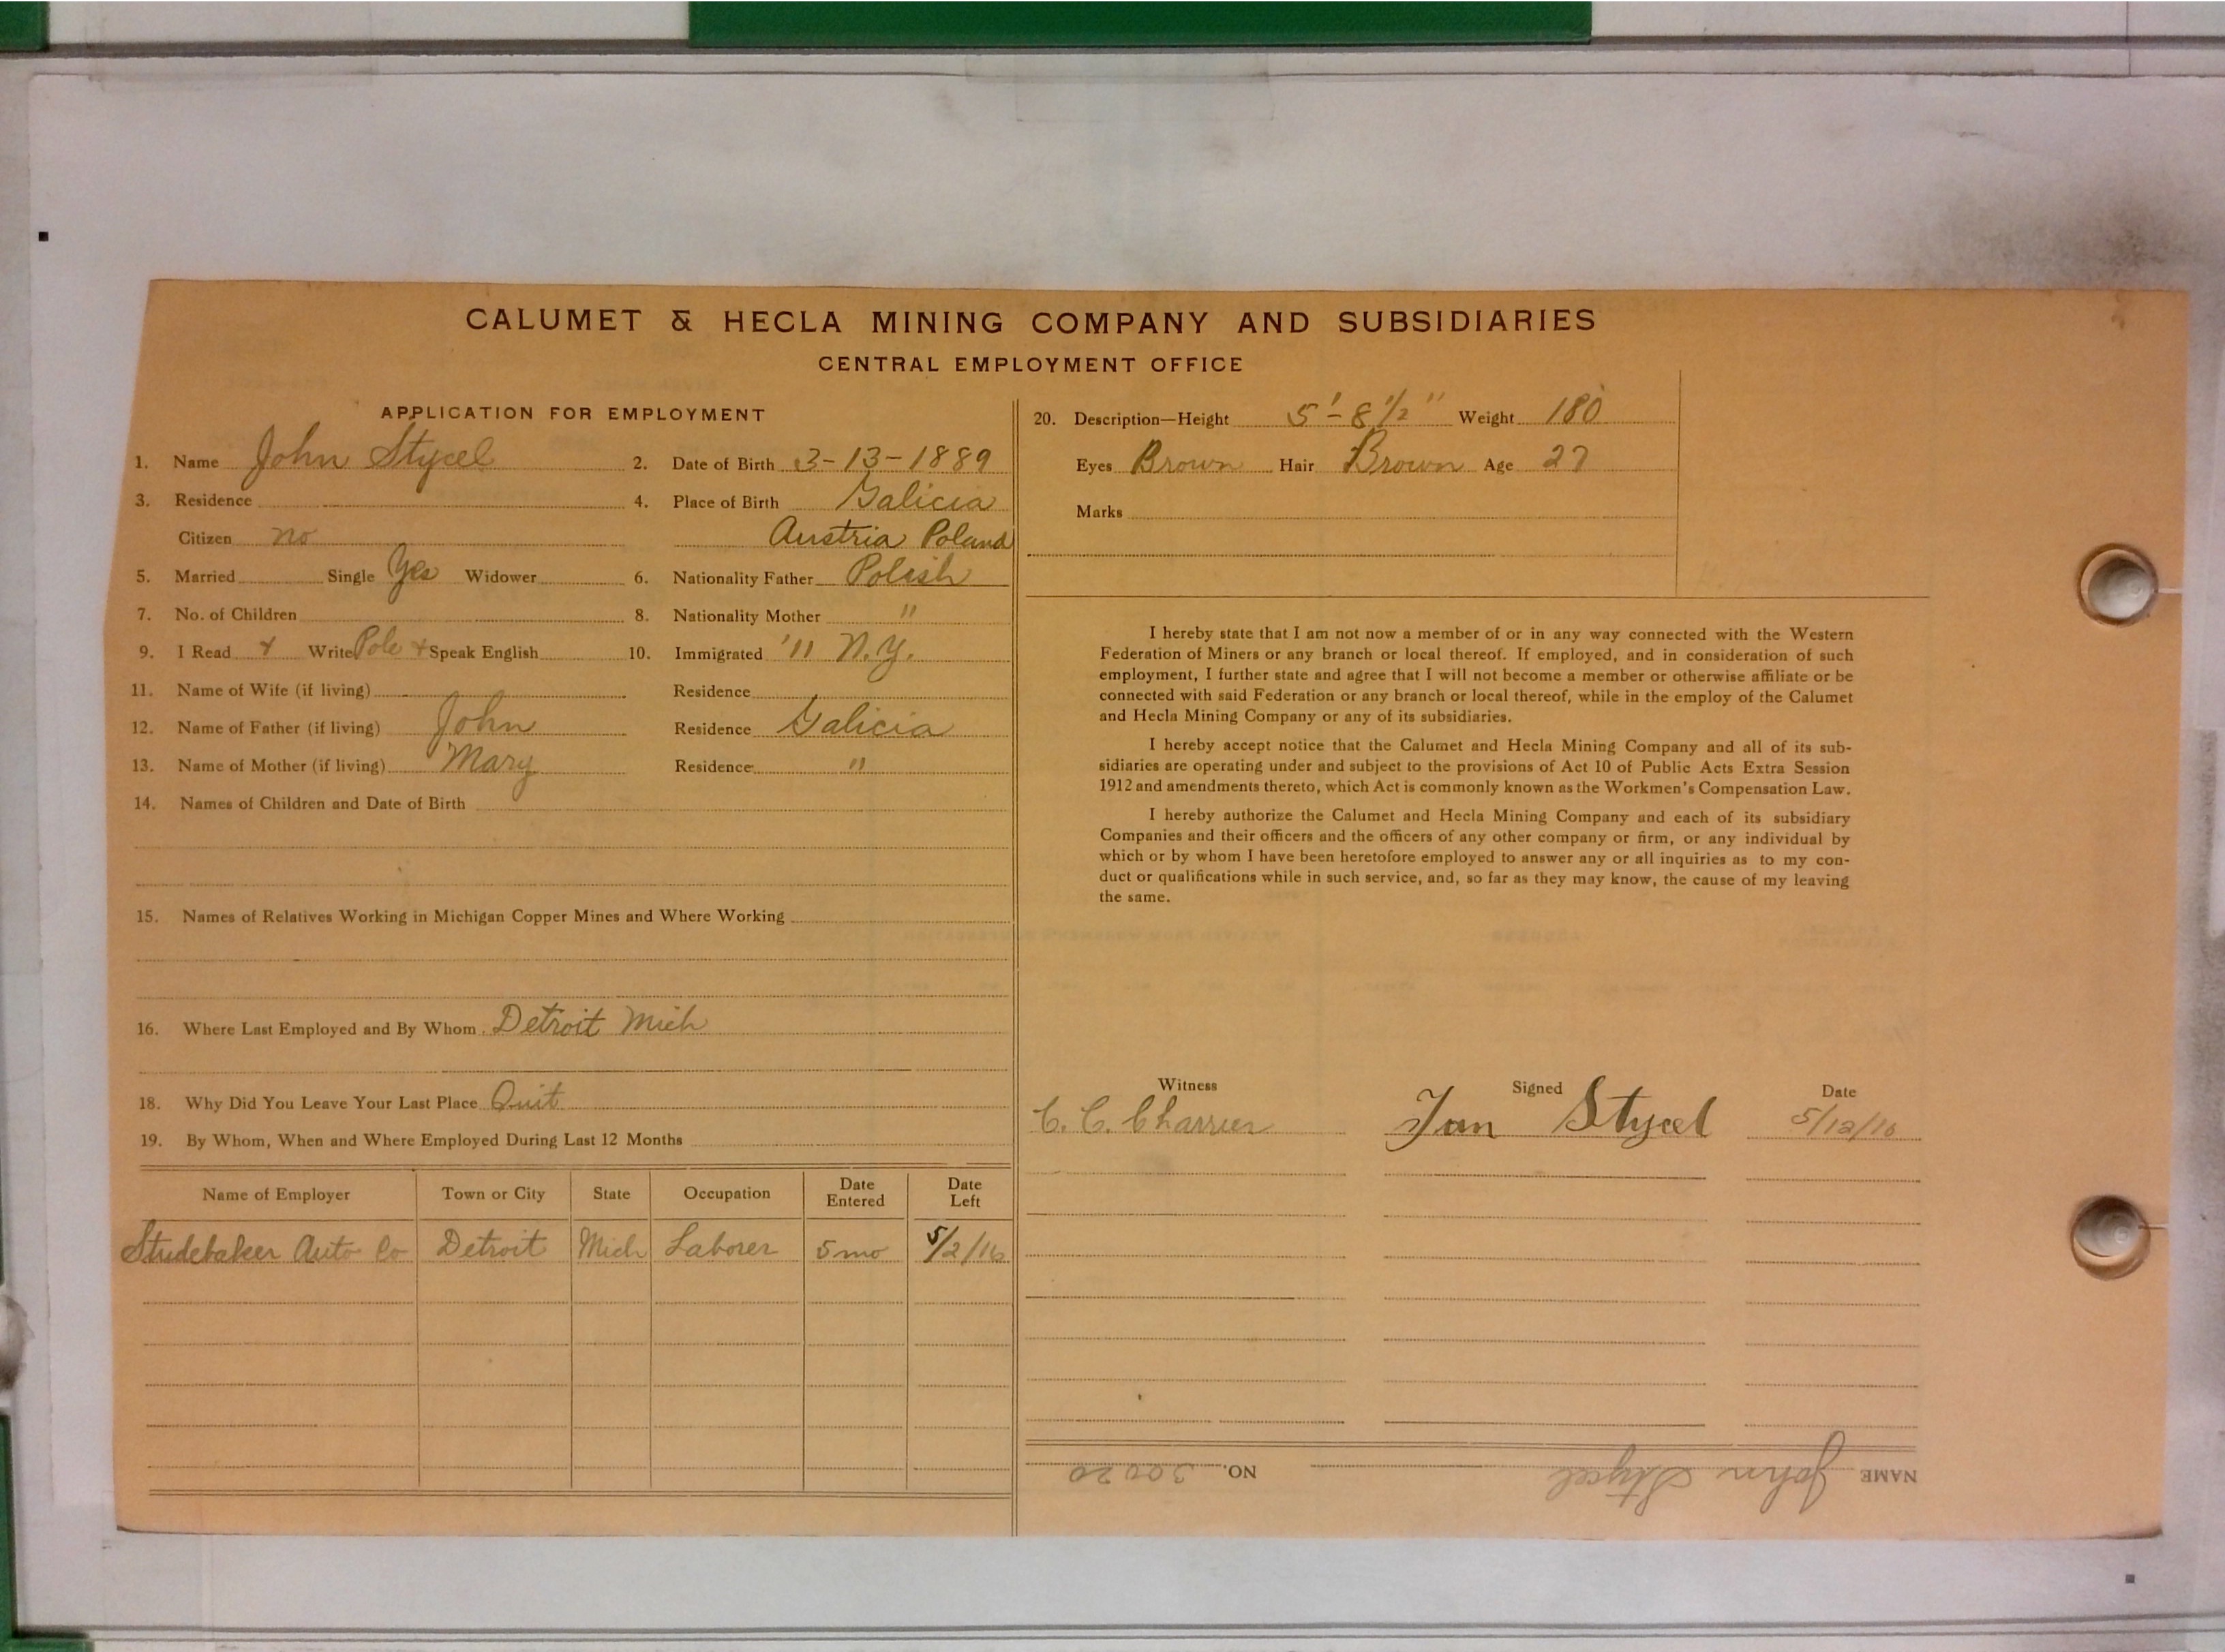 CALUMET & HECLA MINING COMPANY AND SUBSIDIARIES
CENTRAL EMPLOYMENT OFFICE
APPLICATION FOR EMPLOYMENT
1. Name John Stycel 2. Date of Birth 3-13-1889
3. Residence 4. Place of Birth Galicia
Citizen no Austria Poland
5. Married Single Yes Widower 6. Nationality Father Polish
7. No. of Children 8. Nationality Mother "
9. I Read & Write Pole & Speak English 10. Immigrated '11 N.Y.
11. Name of Wife (if living) Residence
12. Name of Father (if living) John Residence Galicia
13. Name of Mother (if living) Mary Residence "
14. Names of Children and Date of Birth
15. Names of Relatives Working in Michigan Copper Mines and Where Working
16. Where Last Employed and By Whom Detroit Mich
18. Why Did You Leave Your Last Place Quit
19. By Whom, When and Where Employed During Last 12 Months
Name of Employer Town or City State Occupation Date Entered Date Left
Studebaker Auto Co Detroit Mich Laborer 5 mo 5/2/16
20. Description—Height 5'-8 1/2" Weight 180
Eyes Brown Hair Brown Age 27
Marks
I hereby state that I am not now a member of or in any way connected with the Western
Federation of Miners or any branch or local thereof. If employed, and in consideration of such
employment, I further state and agree that I will not become a member or otherwise affiliate or be
connected with said Federation or any branch or local thereof, while in the employ of the Calumet
and Hecla Mining Company or any of its subsidiaries.
I hereby accept notice that the Calumet and Hecla Mining Company and all of its sub-
sidiaries are operating under and subject to the provisions of Act 10 of Public Acts Extra Session
1912 and amendments thereto, which Act is commonly known as the Workmen's Compensation Law.
I hereby authorize the Calumet and Hecla Mining Company and each of its subsidiary
Companies and their officers and the officers of any other company or firm, or any individual by
which or by whom I have been heretofore employed to answer any or all inquiries as to my con-
duct or qualifications while in such service, and, so far as they may know, the cause of my leaving
the same.
Witness Signed Date
C. C. Charrier Jan Stycel 5/12/16
NAME John Stycel NO. 30020